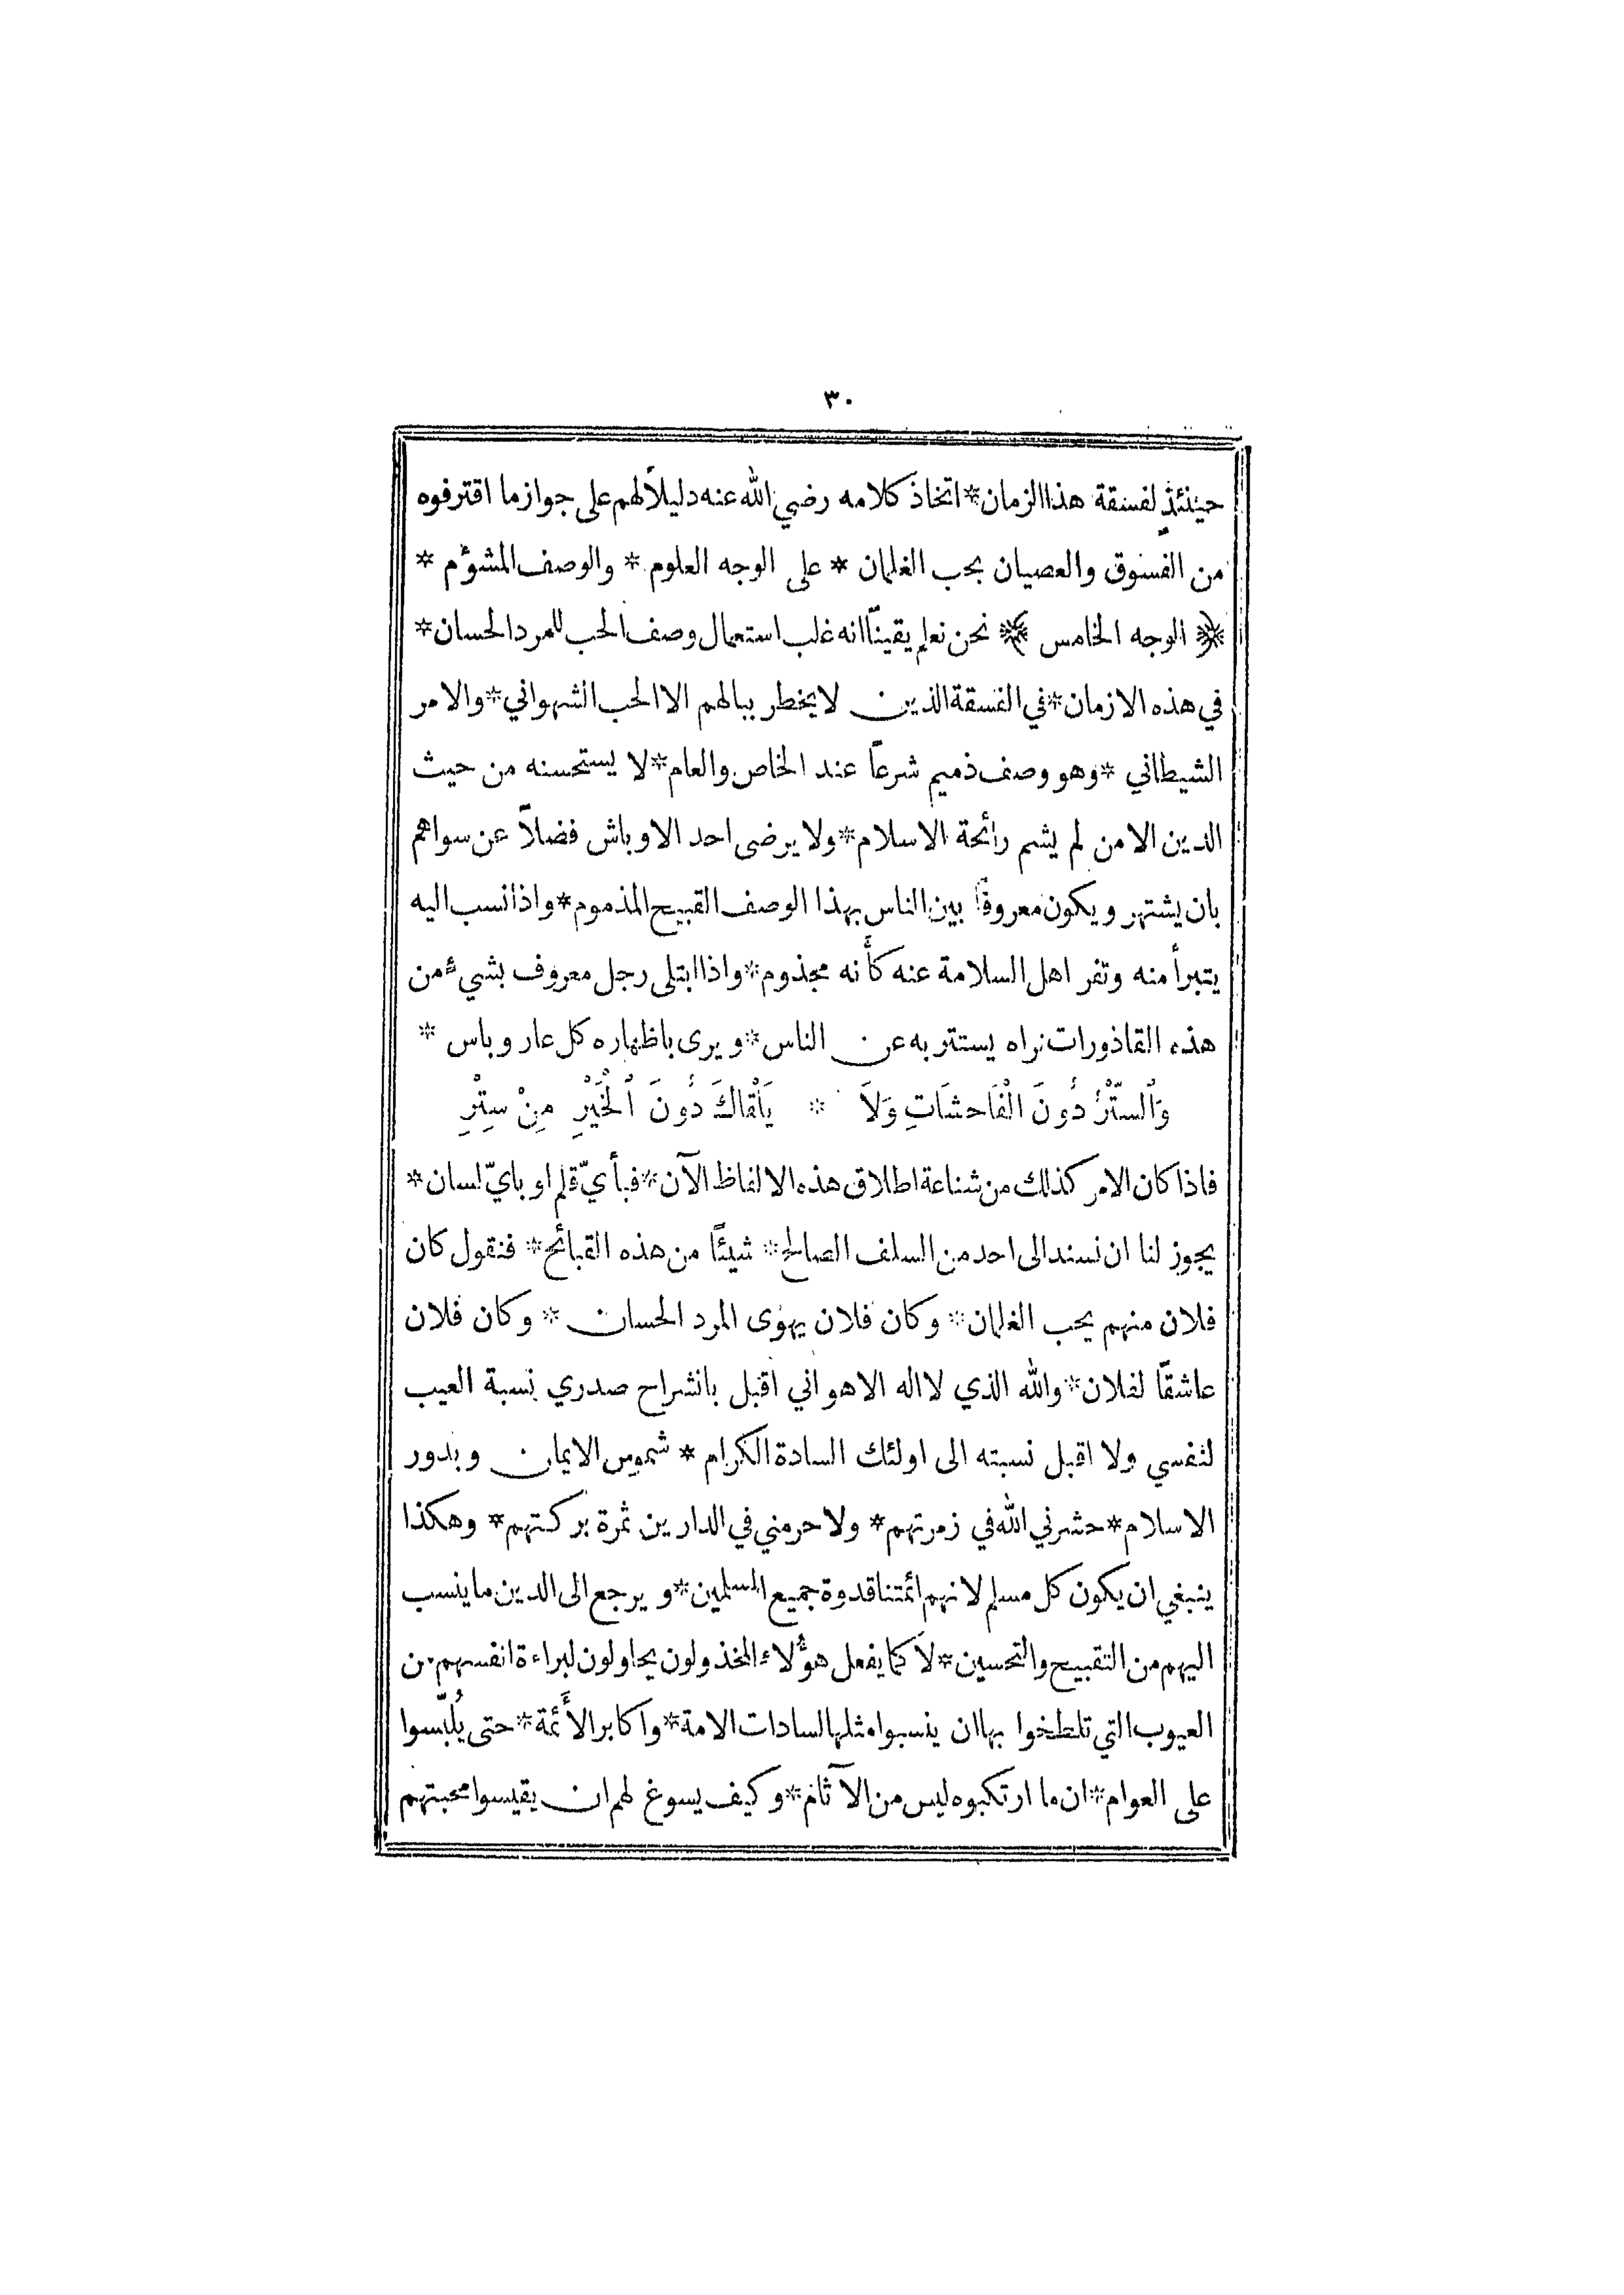 ٣٠
حينئذٍ لفسقة هذا الزمان * اتخاذ كلامه رضي الله عنه دليلاً لهم على جواز ما اقترفوه
من الفسوق والعصيان بحب الغلمان * على الوجه العلوم * والوصف المشؤم *
﴿ الوجه الخامس ﴾ نحن نعلم يقيناً انه غلب استعمال وصف الحب للمرد الحسان *
في هذه الازمان * في الفسقة الذين لا يخطر ببالهم الا الحب الشهواني * والامر
الشيطاني * وهو وصف ذميم شرعاً عند الخاص والعام * لا يستحسنه من حيث
الدين الا من لم يشم رائحة الاسلام * ولا يرضى احد الاوباش فضلاً عن سواهم
بان يشتهر ويكون معروفاً بين الناس بهذا الوصف القبيح المذموم * واذا نسب اليه
يتبرأ منه وتفر اهل السلامة عنه كأنه مجذوم * واذا ابتلى رجل معروف بشيءٍ من
هذه القاذورات نراه يستتر به عن الناس * ويرى باظهاره كل عار وباس *
وَالسِّتْرُ دُونَ الْفَاحشَاتِ وَلاَ * يَلْقَاكَ دُونَ الْخَيْرِ مِنْ سِتْرِ
فاذا كان الامر كذلك من شناعة اطلاق هذه الالفاظ الآن * فبأيّ قلم او بايّ لسان *
يجوز لنا ان نسند الى احد من السلف الصالح * شيئًا من هذه القبائح * فنقول كان
فلان منهم يحب الغلمان * وكان فلان يهوى المرد الحسان * وكان فلان
عاشقًا لفلان * والله الذي لا اله الا هو اني اقبل بانشراح صدري نسبة العيب
لنفسي ولا اقبل نسبته الى اولئك السادة الكرام * شموس الايمان وبدور
الاسلام * حشرني الله في زمرتهم * ولا حرمني في الدارين ثمرة بركتهم * وهكذا
ينبغي ان يكون كل مسلم لانهم ائمتنا قدوة جميع المسلمين * ويرجع الى الدين ما ينسب
اليهم من التقبيح والتحسين * لا كما يفعل هؤلاء المخذولون يحاولون لبراءة انفسهم من
العيوب التي تلطخوا بها ان ينسبوا مثلها لسادات الامة * واكابر الأَئمة * حتى يُلبّسوا
على العوام * ان ما ارتكبوه ليس من الآثام * وكيف يسوغ لهم ان يقيسوا محبتهم